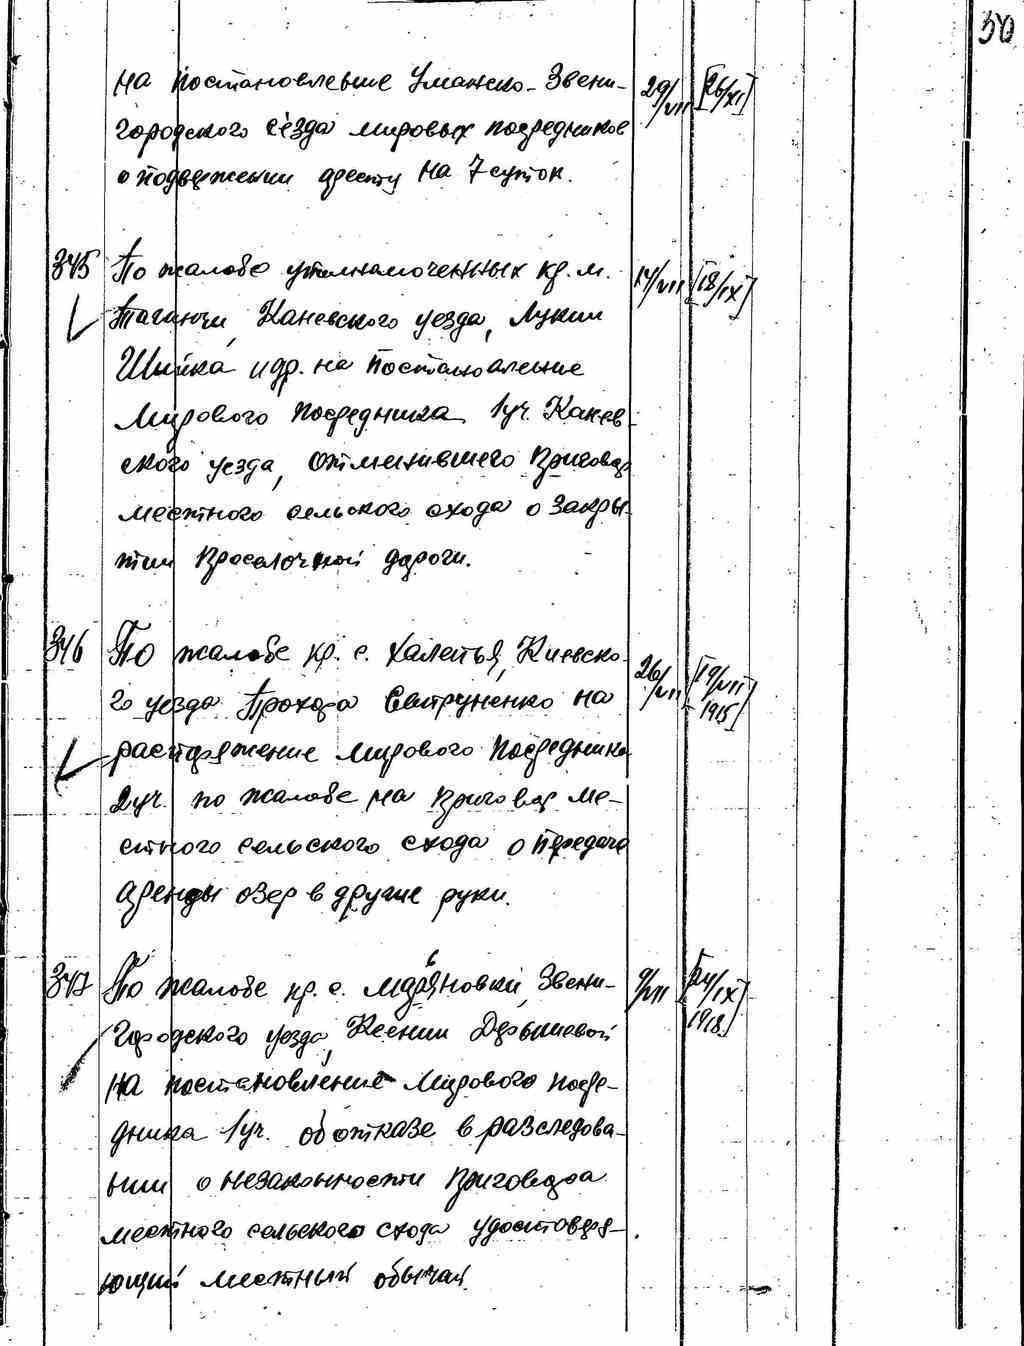 50
на постановление Уманско-Звени- 29/VII [26/XI]
городского с'езда мировых посредников
о подвержении аресту на 7 суток.
345 По жалобе уполномоченных кр. м. 14/VII [18/IX]
Таганчи, Каневского уезда, Лукии
и др. на постановление
Мирового посредника 1 уч. Канев-
ского уезда, отменившего приговор
местного сельского схода о закры-
тии проселочной дороги.
346 По жалобе кр. с. Халепья, Киевско- 26/VII [19/VII
го уезда Прохора Свитруненко на 1915]
распоряжение мирового посредника
2 уч. по жалобе на приговор ме-
стного сельского схода о передаче
аренды озер в другие руки.
347 По жалобе кр. с. Звени- 9/VII [24/IX
городского уезда, Ксении 1918]
на постановление мирового посре-
дника 1 уч. об отказе в расследова-
нии о незаконности приговора
местного сельского схода удостоверя-
ющий местный обычай